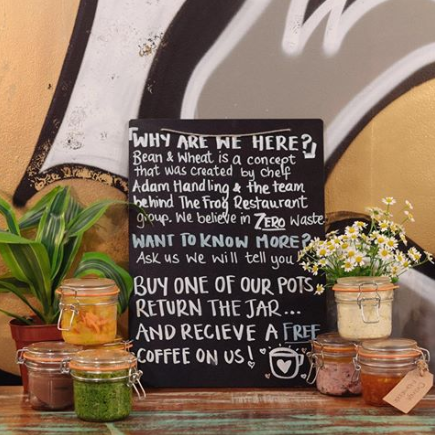 WHY ARE WE HERE?
Bean & Wheat is a concept
that was created by chef
Adam Handling & the team
behind The Frog Restaurant
group. We believe in ZERO waste
WANT TO KNOW MORE?
Ask us we will tell you
BUY ONE OF OUR POTS
RETURN THE JAR...
AND RECIEVE A FREE
COFFEE ON US!